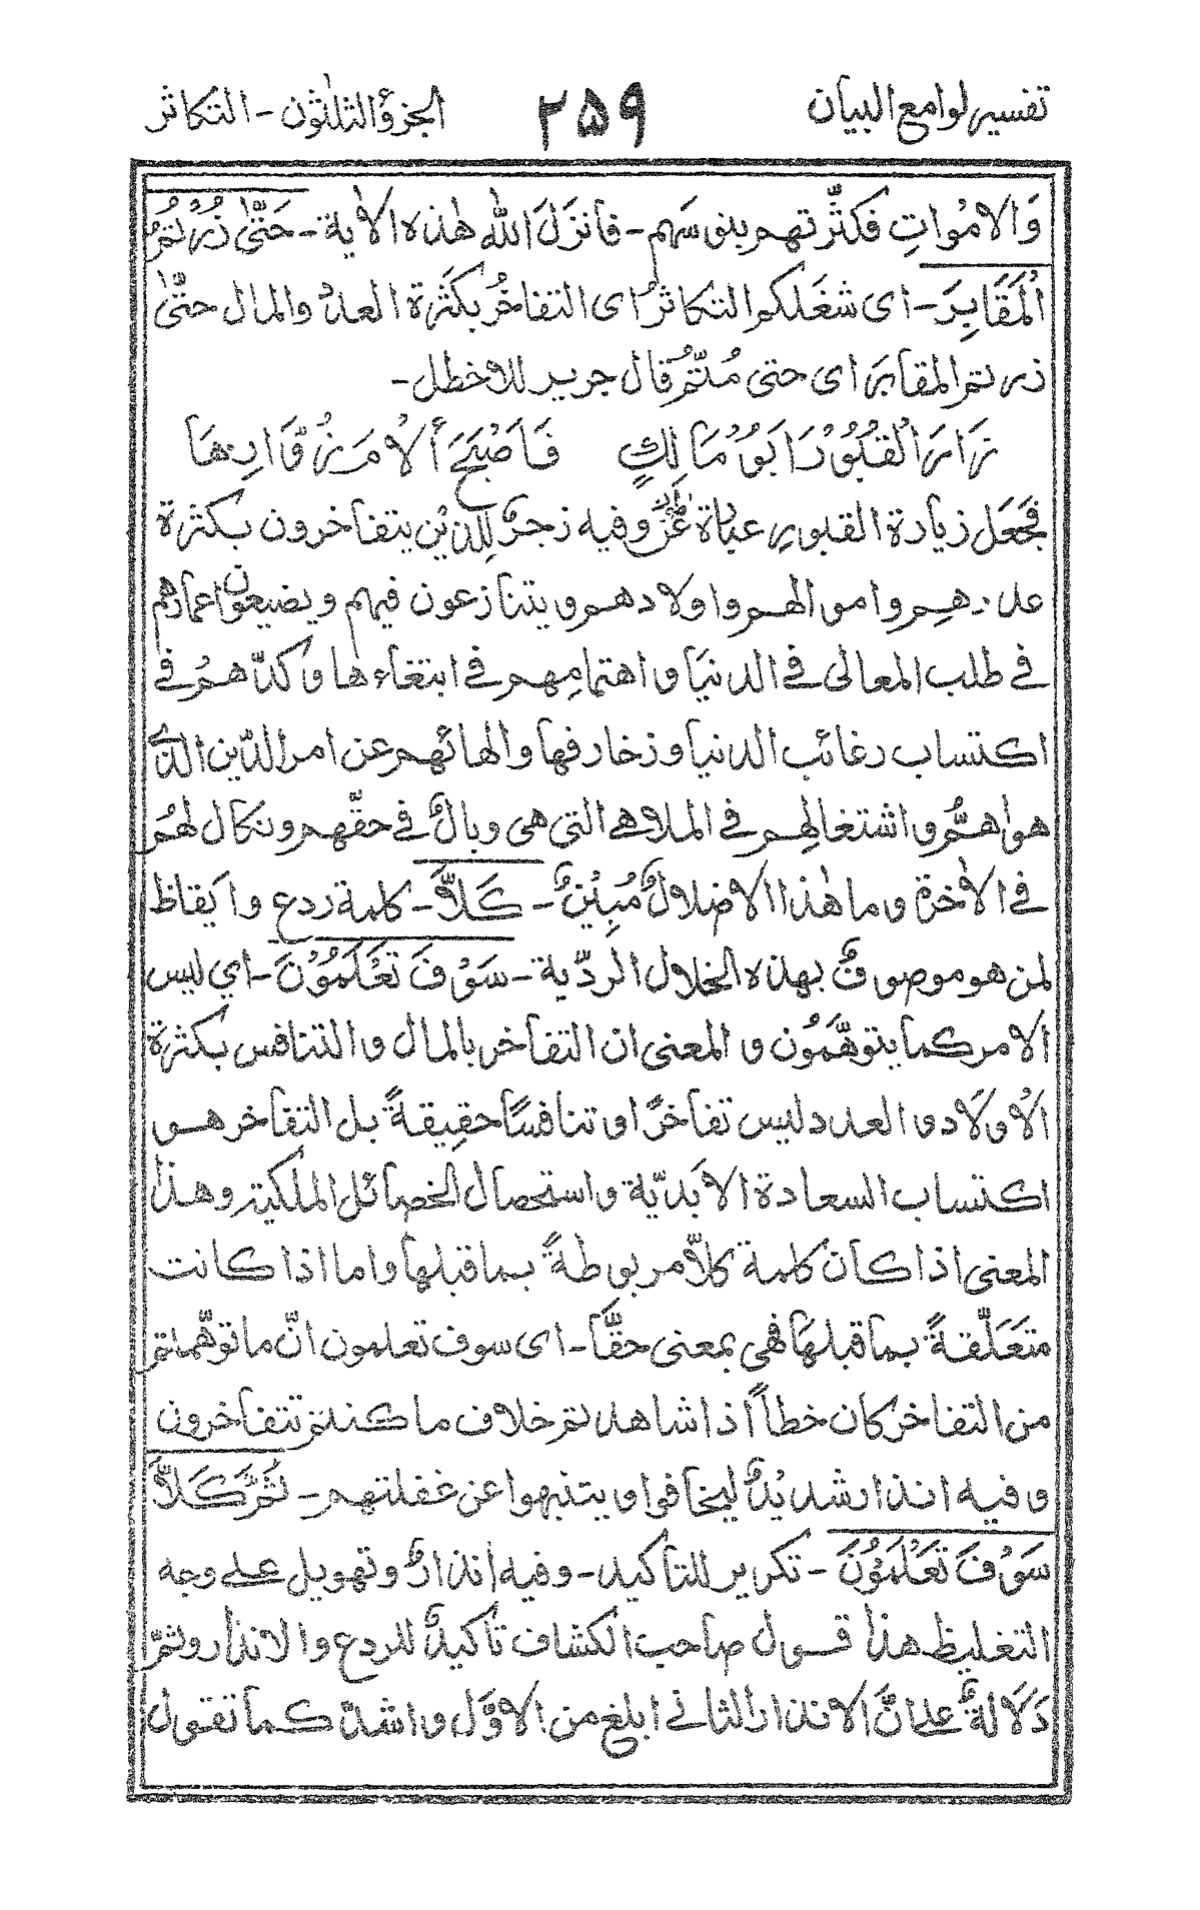 تفسير لوامع البيان ٢٥٩ الجزؤ الثلٰثون - التكاثر
وَالامْواتِ فكثّرتهم بنو سَهم - فانزَلَ اللّٰه هٰذه الاٰية - حَتّىٰ زُرْتُمُ
الْمَقَابِرَ - اى شغَلكم التكاثرُ اى التفاخُر بكثَرة العددُ والمال حتّىٰ
زرتم المقابرَ اى حتى مُتّمُ قال جرير للاخطل -
زَارَ الْقُبُوْرَ اَبُوْ مَالِكٍ فَاَصْبَحَ أَلْامَ زُوَّارِهَا
فجَعَل زيارة القبور عبارة عن الموت وفيه زجرٌ لِلذيْن يتفاخرون بكثرة
عددهِم واموالهم واولادهم ويتنازعون فيهم ويضيعون اعمارهم
فى طلب المعالى فى الدنيَا واهتمامِهم فى ابتغاءها وكدّهمُ فى
اكتساب رغائب الدنيا وزخارفها والهائهم عن امر الدّين الذى
هو اهمُّ واشتغالِهم فى الملاهى التى هى وبالٌ فى حقّهم ونكال لهُم
فى الاٰخرة وما هٰذا الا ضلالٌ مُبِيْنٌ - كَلاَّ - كلمة ردع وايقاظ
لمن هو موصوفٌ بهذه الخلال الردّية - سَوْفَ تَعْلَمُوْنَ - اى ليس
الامر كما يتوهَّمُون و المعنى ان التفاخر بالمال والتنافس بكثرة
الْاوْلَاد وى العدد ليس تفاخرًا او تنافسًا حقِيقةً بل التفاخر هو
اكتساب السعادة الابَديّة واستحصال الخصائل الملكية وهذا
المعنى اذا كان كلمة كلاّ مربوطةً بما قبلها واما اذا كانت
متعَلّقةً بما قبلهَا فهى بمعنى حقًّا - اى سوف تعلمون انّ ما توهّمتم
من التفاخر كان خطأً اذا شاهدتم خلاف ما كنتم تتفاخرون
وفيه انذار شديْدٌ ليخافوا ويتنبهوا عن غفلتهم - ثُمَّ كَلاَّ
سَوْفَ تَعْلَمُوْنَ - تكرير للتأكيد - وفيه انذارٌ وتهويل على وجه
التغليظ هذا قول صاحب الكشاف تاكيدٌ للردع والانذار وثمّ
دَلالةٌ على انَّ الانذار الثانى ابلغ من الاوَّل واشدّ كما تقول